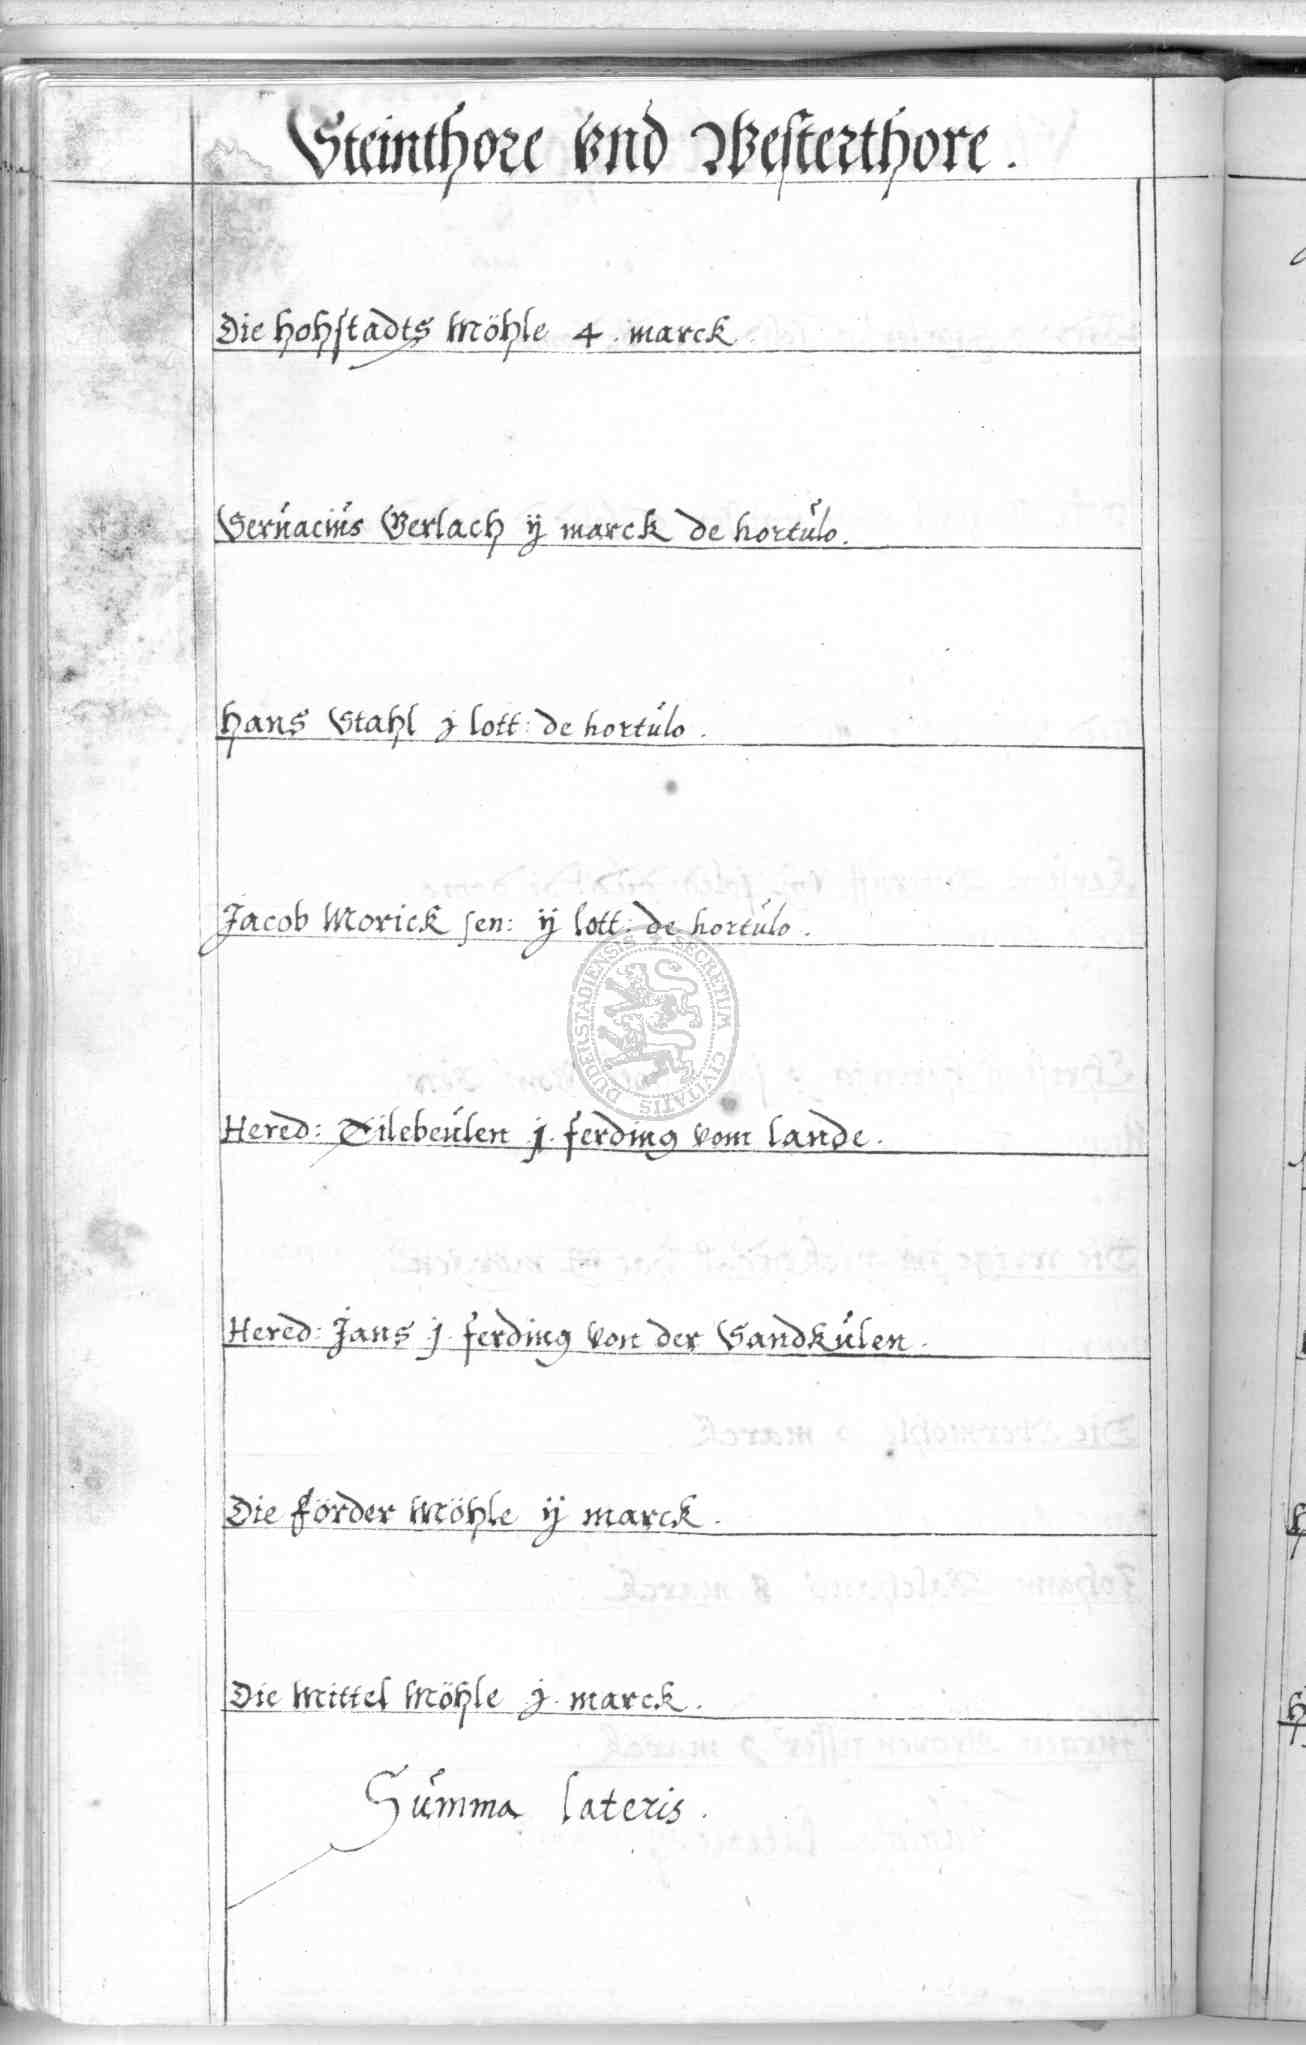 Steinthore Vnd Westerthore.
Die hohstadts Möhle 4. marck.
Servacius Gerlach ij marck de hortulo.
Hans Stahl j lott: de hortulo.
Jacob Morick sen: ij lott: de hortulo.
Hered: Tilebeulen j. ferding vom lande.
Hered: Jans j. ferding von der Sandkulen.
Die förder Möhle ij marck.
Die Mittel Möhle j. marck.
Summa lateris.
DUDERSTADIENSIS SECRETUM CIVITATIS